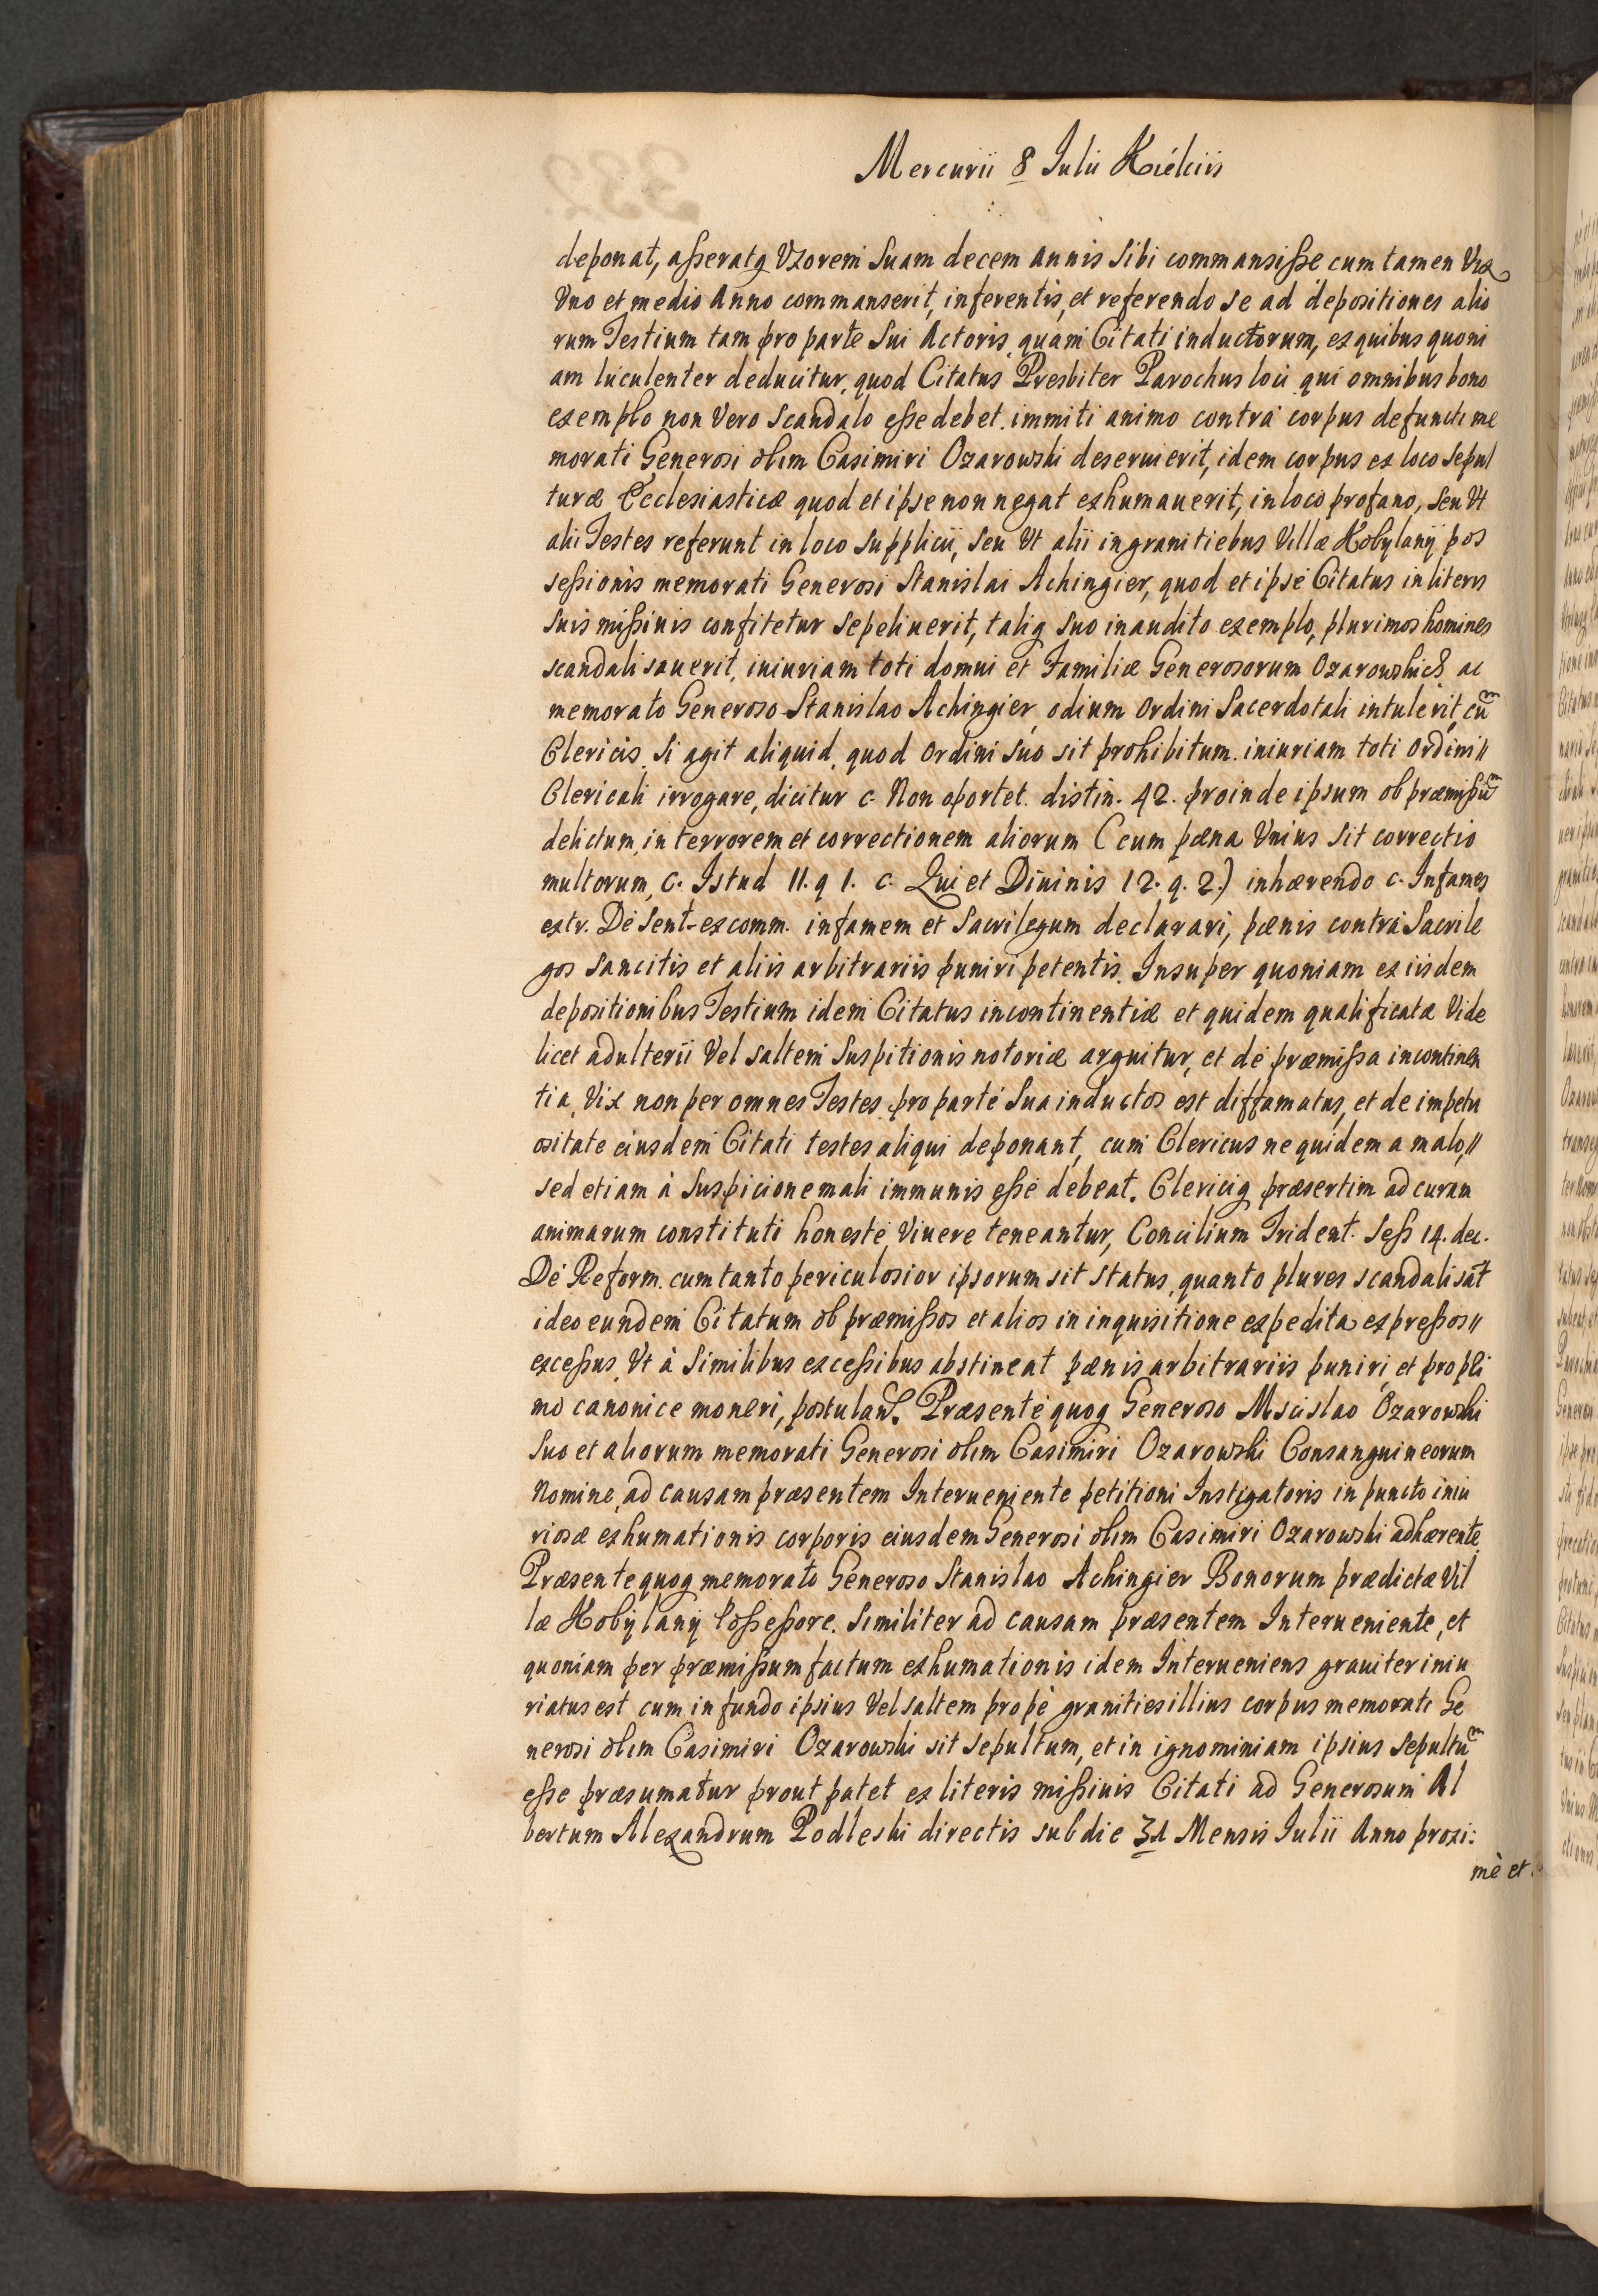 Mercurii 8 Julii Kiélciis
deponat, asseratq Vxorem Suam decem annis Sibi commansisse cum tamen Vix
Vno et medio Anno commanserit, inferentis, et referendo se ad depositiones alio
rum Testium tam pro parte Sui Actoris quam Citati inductorum, ex quibus quoni
am luculenter deducitur, quod Citatus Presbiter Parochus loci qui omnibus bono
exemplo non Vero Scandalo esse debet. immiti animo contra corpus defuncti me
morati Generosi olim Casimiri Ozarowski deseruierit, idem corpus ex loco Sepul
turæ Ecclesiasticæ quod et ipse non negat exhumauerit, in loco profano, Seu Vt
alii Testes referunt in loco Supplicii, Seu Vt alii in granitiebus Villæ Kobylany pos
sessionis memorati Generosi Stanislai Achingier, quod et ipse Citatus in literis
Suis missiuis confitetur Sepeliuerit, taliq Suo inaudito exemplo, plurimos homines
scandalisauerit, iniuriam toti domui et Familiæ Generosorum Ozarowskich ac
memorato Generoso Stanislao Achingier, odium Ordini Sacerdotali intulerit, cu͂
Clericis. Si agit aliquid, quod Ordini Suo sit prohibitum. iniuriam toti Ordini //
Clericali irrogare, dicitur c. Non oportet. distin. 42. proinde ipsum ob præmissu͂
delictum, in terrorem et correctionem aliorum (cum pæna Vnius Sit correctio
multorum, c. Istud 11. q 1. c. Qui et Diuinis 12. q. 2.) inhærendo c. Infames
extr. De Sent. excomm. infamem et Sacrilegum declarari, pœnis contra Sacrile
gos Sancitis et aliis arbitrariis puniri petentis. Insuper quoniam ex iisdem
depositionibus Testium idem Citatus incontinentiæ et quidem qualificatæ Vide
licet adulterii Vel saltem Suspitionis notoriæ arguitur, et de præmissa incontinen
tia, Vix non per omnes Testes pro parte Sua inductos est diffamatus, et de impetu
ositate eiusdem Citati testes aliqui deponant, cum Clericus ne quidem a malo, //
sed etiam à Suspicione mali immunis esse debeat. Clericiq præsertim ad curam
animarum constituti honeste Viuere teneantur, Concilium Trident. Sess 14. dec.
De Reform. cum tanto periculosior ipsorum sit status, quanto plures scandalisa͂t
ideo eundem Citatum ob præmissos et alios in inquisitione expedita expressos //
excessus, Vt à Similibus excessibus abstineat pænis arbitrariis puniri, et pro pli
mo canonice moneri, postulan. Præsente quoq Generoso Mscislao Ozarowski
Suo et aliorum memorati Generosi olim Casimiri Ozarowski Consanguineorum
Nomine, ad causam præsentem Interueniente petitioni Instigatoris in puncto iniu
riosæ exhumationis corporis eiusdem Generosi olim Casimiri Ozarowski adhærente
Præsente quoq memorato Generoso Stanislao Achingier Bonorum prædictæ Vil
læ Kobylany Possessore. Similiter ad causam præsentem Interueniente, et
quoniam per præmissum factum exhumationis idem Interueniens grauiter iniu
riatus est cum in fundo ipsius Vel saltem propè granities illius corpus memorati Ge
nerosi olim Casimiri Ozarowski sit sepultum, et in ignominiam ipsius Sepultu͂
esse præsumatur prout patet ex literis missiuis Citati ad Generosum Al
bertum Alexandrum Podleski directis sub die 31 Mensis Julii Anno proxi:
mè et